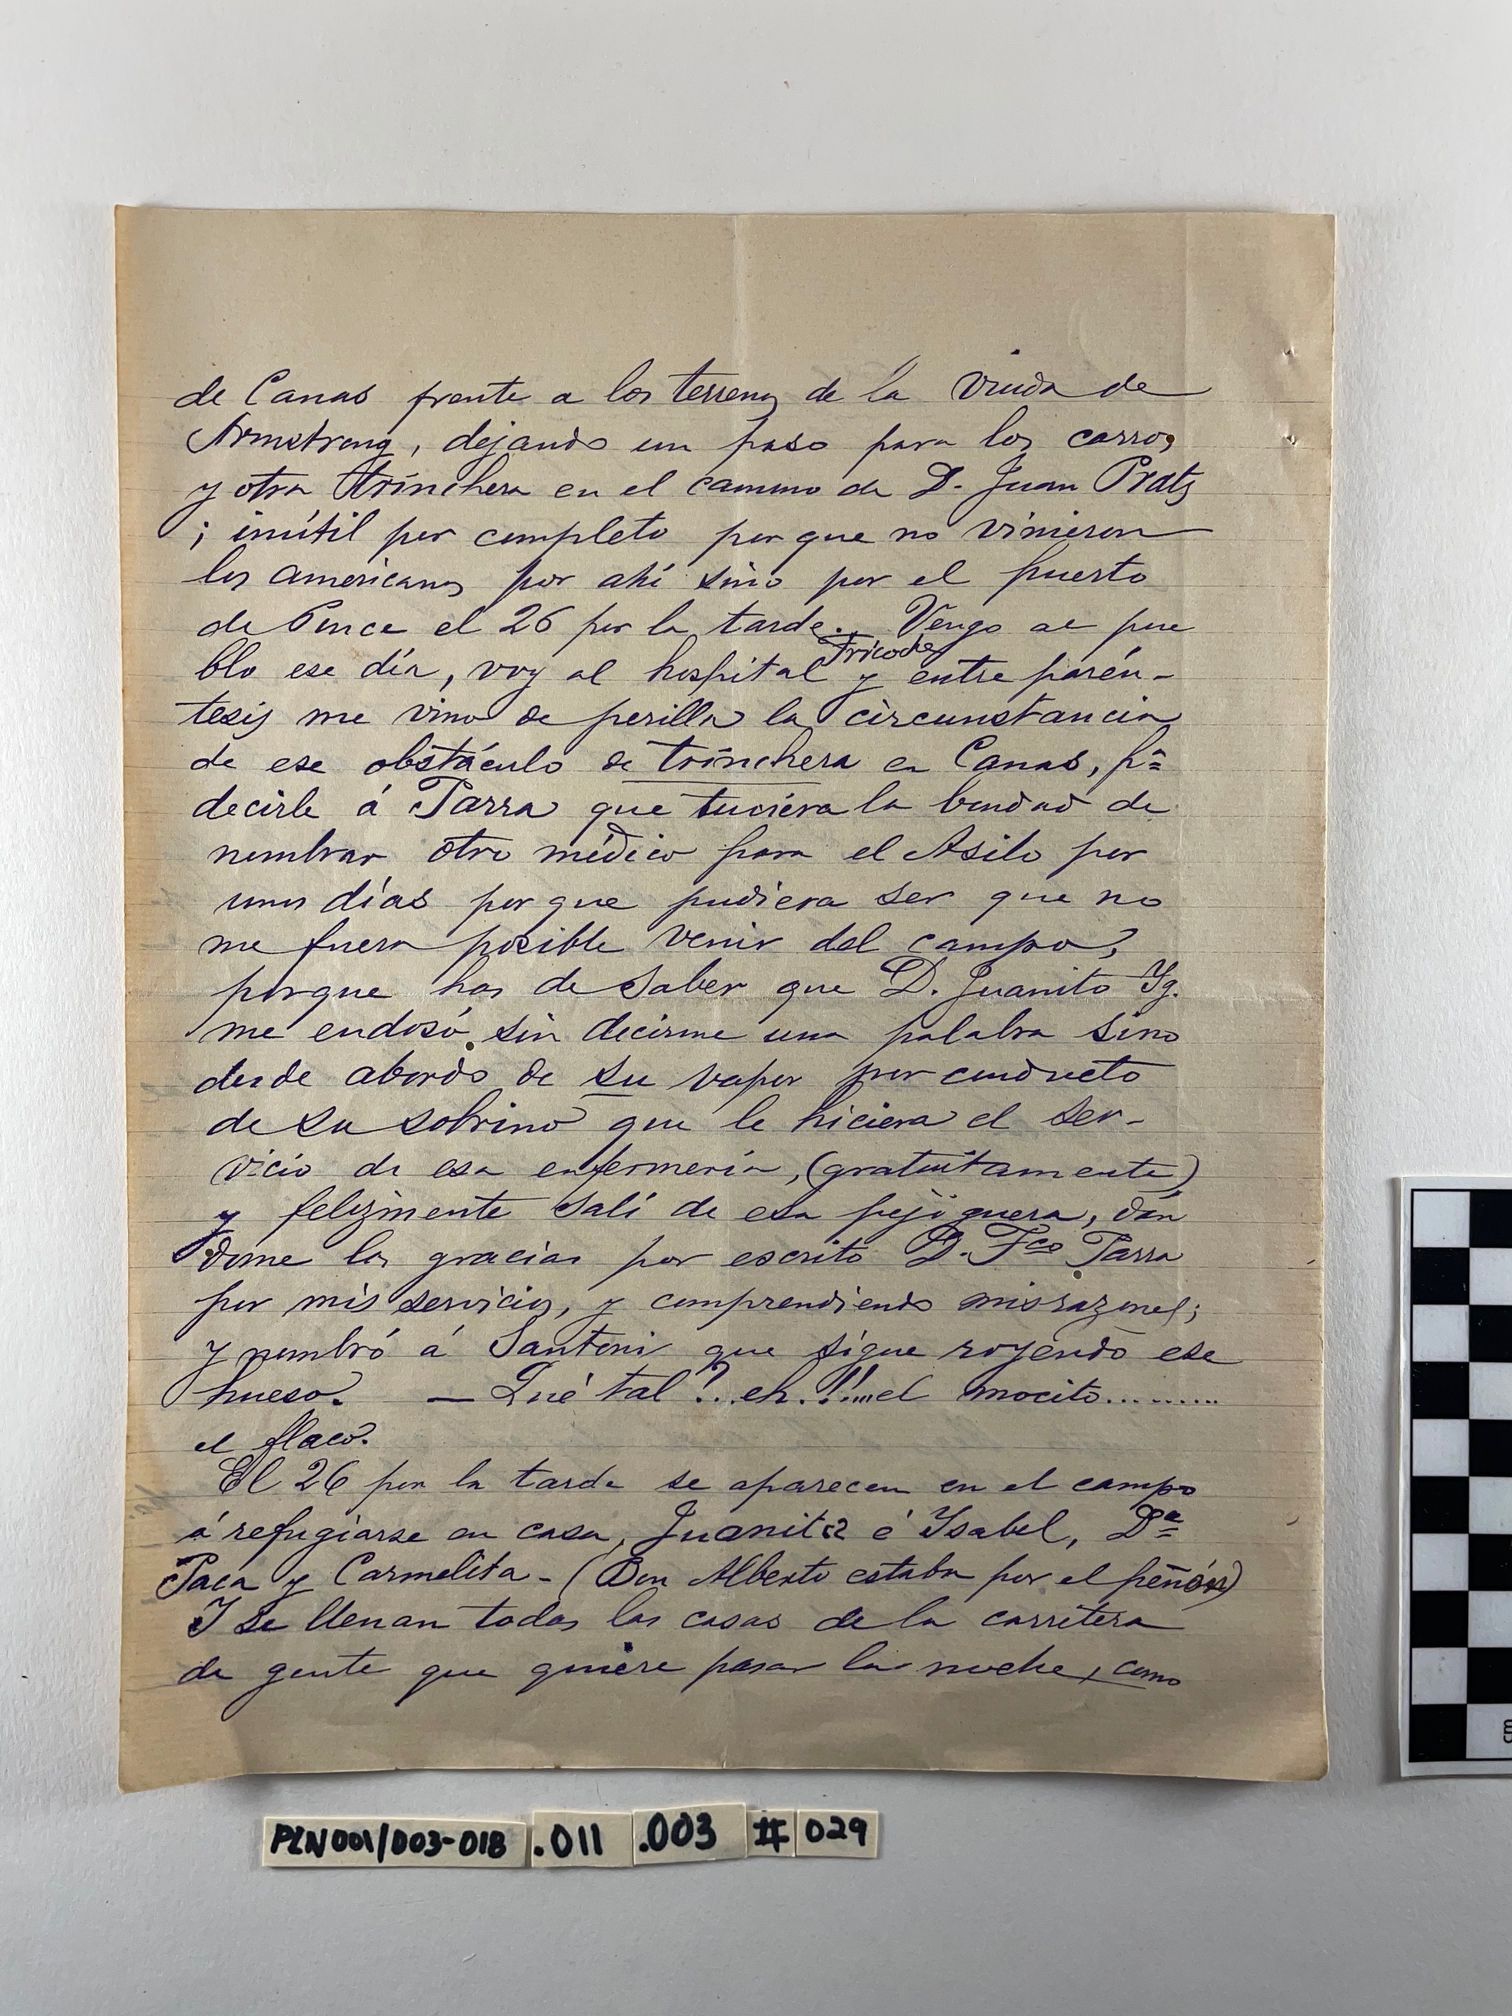 de Canas frente a los terrenos de la viuda de
Armstrong, dejando un paso para los carros,
y otra trinchera en el camino de D. Juan Prats
; inútil por completo por que no vinieron
los americanos por ahí sino por el puerto
de Ponce el 26 por la tarde... Vengo al pue
blo ese día, voy al hospital Tricoche y entre parén-
tesis me vino de perilla la circunstancia
de ese obstáculo de trinchera en Canas, pª
decirle á Parra que tuviera la bondad de
nombrar otro médico para el Asilo por
unos días por que pudiera ser que no
me fuera posible venir del campo,
porque has de saber que D. Juanito Yg.
me endosó sin decirme una palabra sino
desde abordo de su vapor por conducto
de su sobrino que le hiciera el ser-
vicio de esa enfermería, (gratuitamente)
y felizmente salí de esa pejiguera, dán
dome las gracias por escrito D. Fco Parra
por mis servicios, y comprendiendo mis razones;
y nombró á Santoni que sigue royendo ese
hueso. — Qué tal?..eh.!!...el mocito.........
el flaco.
El 26 por la tarde se aparecen en el campo
á refugiarse en casa, Juanita é Ysabel, Dª
Paca y Carmelita - (Don Alberto estaba por el peñón)
Y se llenan todas las casas de la carretera
de gente que quiere pasar la noche, como
PLN001/003-018 .011 .003 # 029